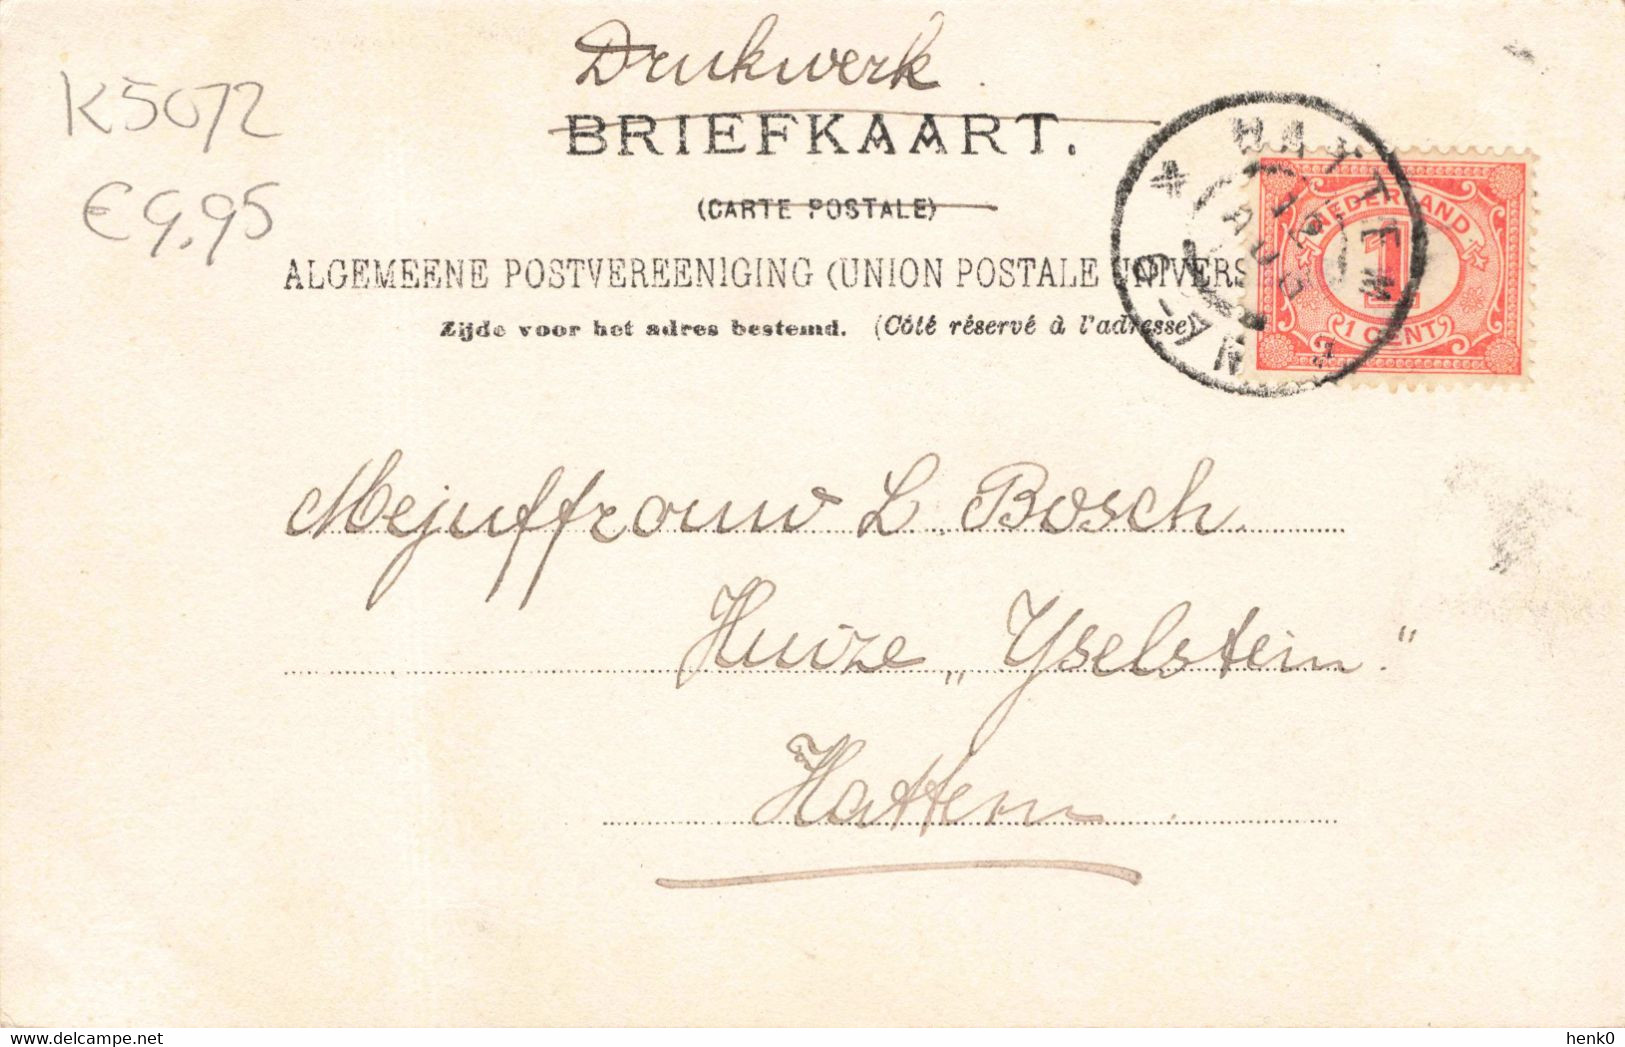 Drukwerk.
K5072
BRIEFKAART.
€ 9,95
(CARTE POSTALE)
ALGEMEENE POSTVEREENIGING (UNION POSTALE UNIVERS
Zijde voor het adres bestemd. (Côté réservé à l'adresse)
HATTEM
12 AUG
NEDERLAND
1
1 CENT
Mejuffrouw L. Bosch
Huize „Yselstein."
Hattem
henk0